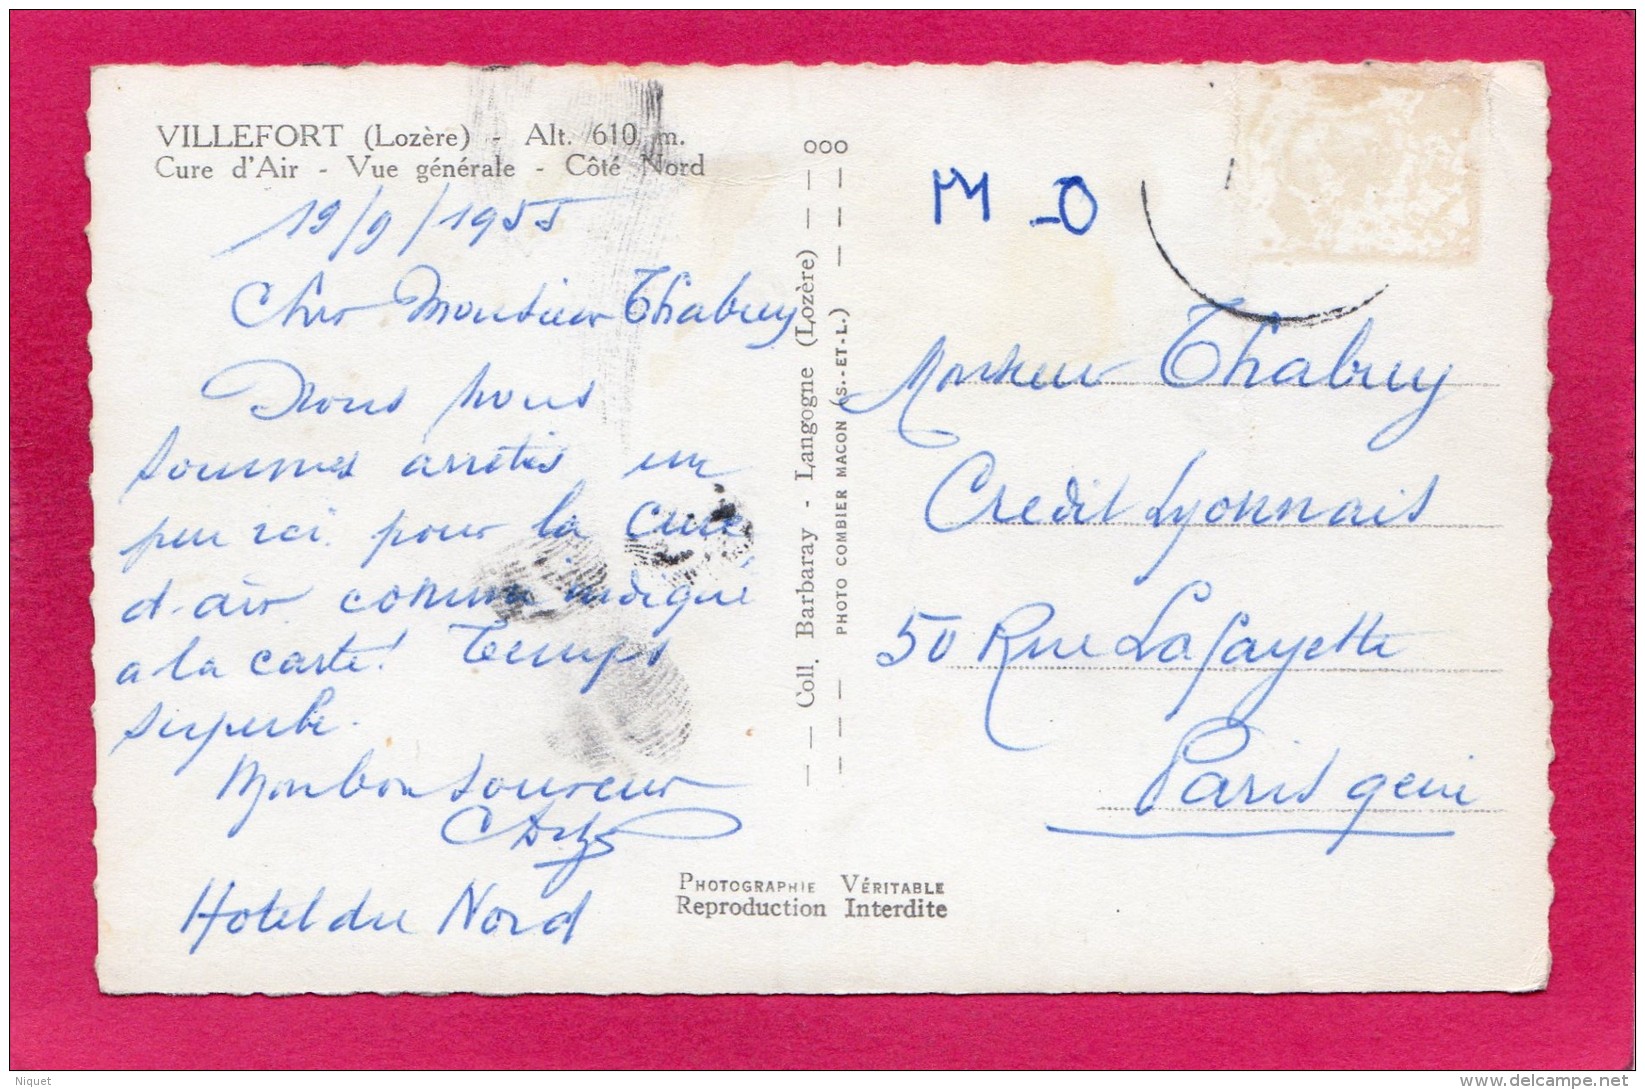 VILLEFORT (Lozère) - Alt. 610 m.
Cure d'Air - Vue générale - Côté Nord
19/9/1955
Cher Monsieur Thabuy
Nous nous
sommes arretés un
peu ici pour la cure
d-air comme indiqué
a la carte! Temps
superbe.
Mon bon souvenir
Hotel du Nord
ooo
Coll. Barbaray - Langogne (Lozère)
PHOTO COMBIER MACON (S.-ET-L.)
M -O
Monsieur Thabuy
Credit Lyonnais
50 Rue Lafayette
Paris 9eme
PHOTOGRAPHIE VÉRITABLE
Reproduction Interdite
Niquet
delcampe.net